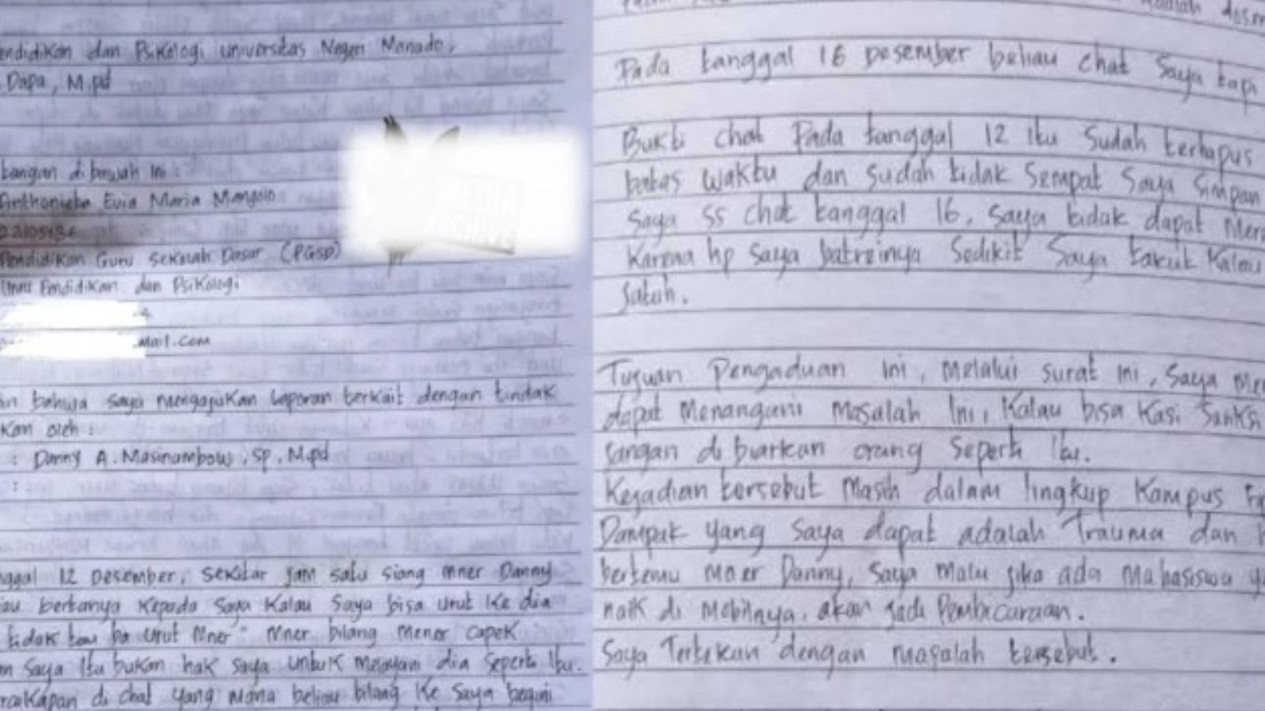 endidikan dan Psikologi universitas Negeri Manado,
Dapa, M.pd
tangan di bawah Ini :
Anthonieta Evia Maria Mangolo
Pendidikan Guru Sekolah Dasar (PGSD)
Ilmu Pendidikan dan Psikologi
mail.com
an bahwa saya mengajukan laporan terkait dengan tindak
kan oleh :
: Danny A. Masinambow, Sp, M.pd
:
nggal 12 Desember, sekitar jam satu siang mner Danny
iau bertanya kepada saya kalau saya bisa urut ke dia
tidak tau ba urut mner" mner bilang mener capek
n saya itu bukan hak saya untuk melayani dia seperti itu.
rcakapan di chat yang mana beliau bilang ke saya begini
Pada tanggal 16 Desember beliau chat Saya tapi
Bukti chat Pada tanggal 12 itu Sudah terhapus
batas waktu dan sudah tidak sempat Saya Simpan
Saya SS chat tanggal 16, Saya tidak dapat Mer
Karena hp Saya batreinya Sedikit Saya takut Kalau
Jatuh.
Tujuan Pengaduan Ini, Melalui surat Ini, Saya Me
dapat Menangani Masalah Ini, Kalau bisa Kasi Sanksi
Jangan di biarkan orang Seperti Itu.
Kejadian tersebut Masih dalam lingkup Kampus
Dampak yang Saya dapat adalah Trauma dan
bertemu Mner Danny, Saya Malu jika ada Mahasiswa y
naik di Mobilnya, akan jadi Pembicaraan.
Saya Tertekan dengan Masalah tersebut.